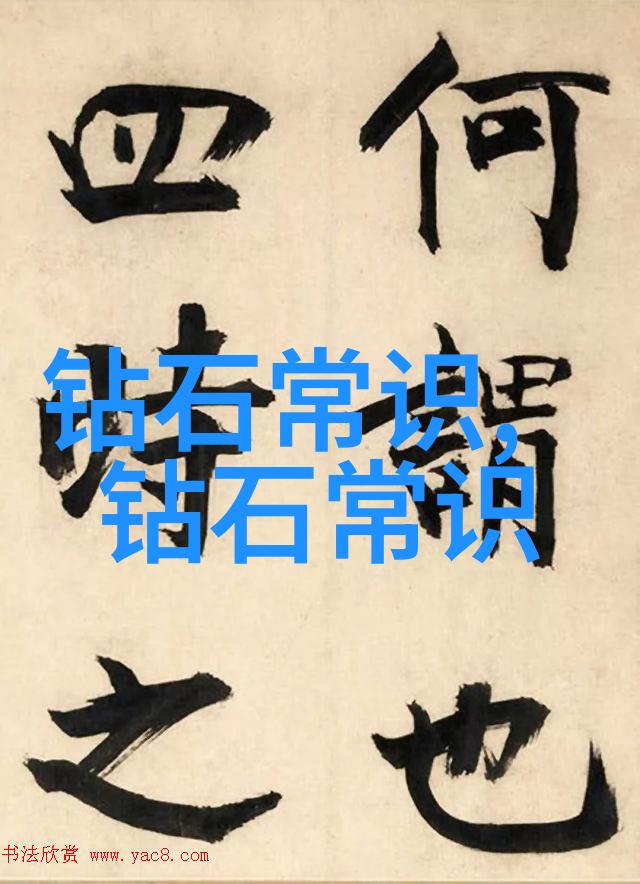 何謂也
四時之
钻石常识,
钻石常识
书法欣赏 www.yac8.com